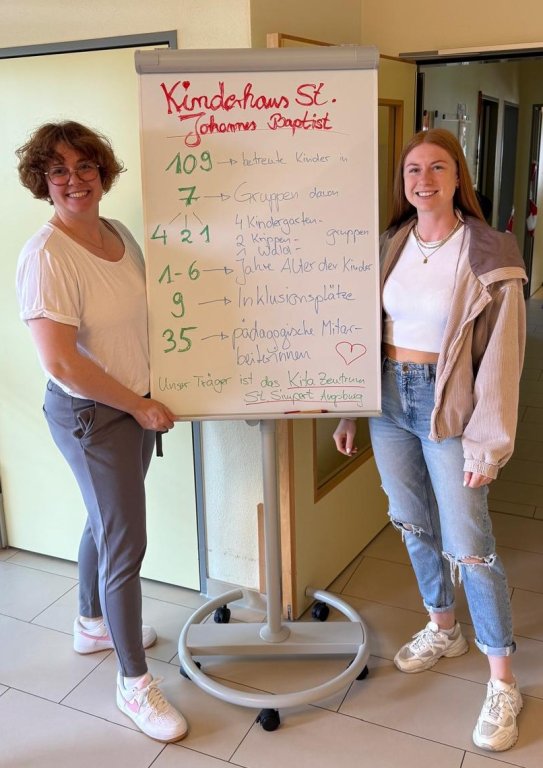 Kinderhaus St.
Johannes Baptist
109 → betreute Kinder in
7 → Gruppen davon
4 2 1 4 Kindergarten-
2 Krippen- gruppen
1 Wald-
1-6 → Jahre Alter der Kinder
9 → Inklusionsplätze
35 → pädagogische Mitar-
beiterinnen
Unser Träger ist das Kita Zentrum
St. Simpert Augsburg